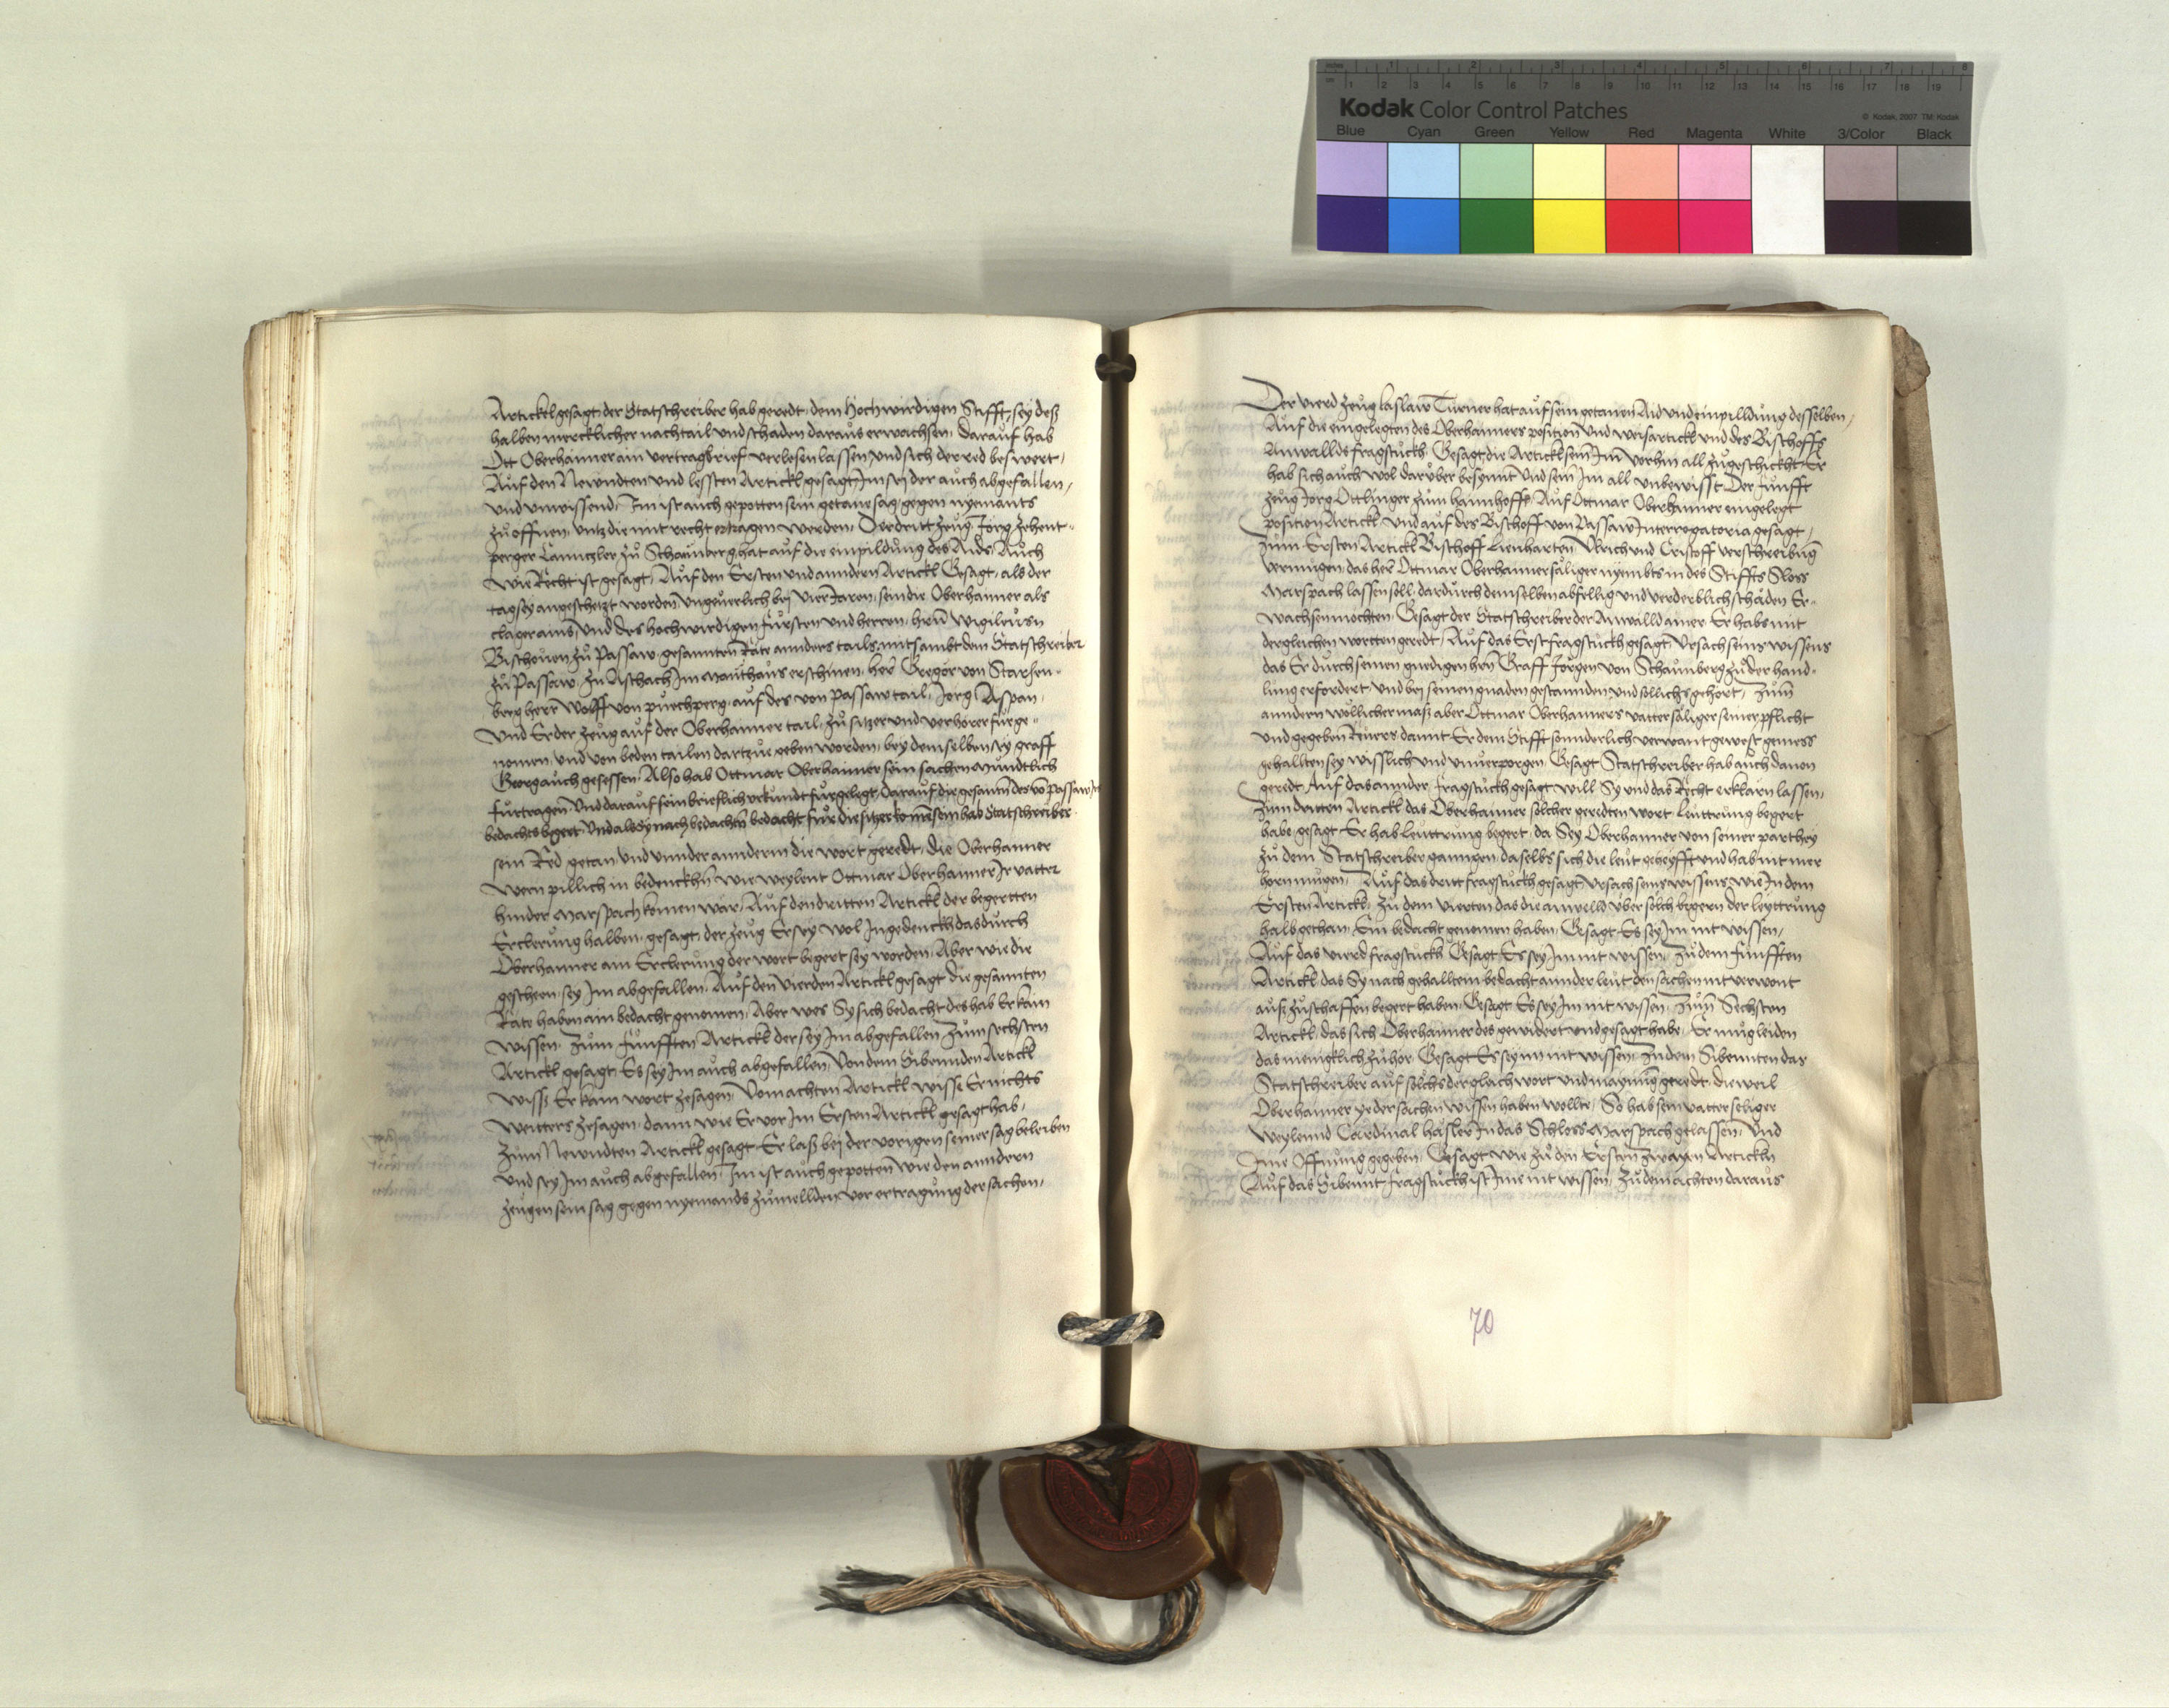 Kodak Color Control Patches
© Kodak, 2007 TM: Kodak
Blue Cyan Green Yellow Red Magenta White 3/Color Black
Artickel gesagt der Statschreiber hab geredt, dem Hochwirdigen Stifft sey desz
halben mercklicher nachtail und schaden daraus erwachsen, darauf hab
Ott Oberhaimer ain vertragbrief verlesen lassen, und sich der red beswert,
Auf den Newndten und lessten Artickl gesagt, Im sej der auch abgefallen,
und unwissend, Im ist auch gepotten sein getane sag, gegen nyemants
zu offnen, untz die mit recht ertragen werden, Der dritt zeug Jorg Zehent-
perger Canntzler zu Schaunberg, hat auf die einpildung des Aids, Auch
wie Recht ist gesagt, Auf den Ersten und anndern Artickl Gesagt, als der
tag sey angeschetzt worden, ungeverlich bej vier Jaren, sein die Oberhaimer als
clager ains, und des hochwirdigen fursten und herren, herrn Wigileusn
Bischoven zu Passaw, gesannten Räte annders tails, mitsambt dem Statschreiber
zu Passaw, zu Aschach Im Mauthaus erschinen, herr Gregor von Starhen-
berg herr Wolff von puechperg, auf des von Passaw tail, Jorg Aspan,
und Er der zeug auf der Oberhaimer tail, zu sitzer und verhörer fürge-
nomen, und von beden tailen dartzue geben worden, bey demselben sey graff
Georg auch gesessen, Also hab Ottmar Oberhaimer sein sachen mundtlich
furtragen, Und darauf sein brieflich urkundt furgelegt, darauf die gesannten des von Passaw
bedachts begert, Und als Sy nach bedachten bedacht fur die sitzer komen sein hab Statschreiber
sein Red getan, und unnder anndern die wort geredt, die Oberhaimer
wern pillich in bedenckhen wie weylent Ottmar Oberhaimer Ir vatter
hinder Marspach komen wär, Auf den dritten Artickl der begertten
Erclerung halben, gesagt, der zeug Er sey wol Ingedenckh das durch
Oberhaimer ain Erclerung der wort begert sey worden, Aber wie die
geschehn, sey Im abgefallen, Auf den vierden Artickl gesagt die gesannten
Räte haben ain bedacht genomen, Aber wes Sy sich bedacht des hab Er kain
wissen, Zum funfften Artickl der sey Im abgefallen, Zum sechsten
Artickl gesagt, Es sey Im auch abgefallen, Von dem Sibennden Artickl
wiss Er kain wort zesagen, Vom achten Artickl wisse Er nichts
weitters zesagen, dann wie Er vor Im Ersten Artickl gesagt hab,
Zum Newndten Artickl gesagt Er lass bej der vorigen seiner sag beleiben
und sey Im auch abgefallen, Im ist auch gepotten wie den anndern
zeugen sein sag gegen nyemands zumellden vor ertragung der sachen,
Der vierd zeug laslaw Turner hat auf sein getanen Aid und einpilldung desselben,
Auf die eingelegten des Oberhaimers position und weisartickl und des Bischoffs
Anwallds fragstuckh Gesagt, die Artickl sein Im vorhin all zugeschickht Er
hab sich auch wol darüber besynnt und sein Im all unbewisst Der funfft
zeug Jorg Ottlinger zum hannhoff Auf Ottmar Oberhaimer eingelegt
position Artickl und auf des Bischoff von Passaw Interrogatoria gesagt,
Zum Ersten Artickl Bischoff Lienharten Ulrich und Cristoff verschreibung
vermugen, das herr Ottmar Oberhaimer säliger nyembts in des Stiffts Sloss
Marspach lassen soll, dardurch demselben abfellig und verderblich schäden Er-
wachsen möchten, Gesagt der Statschreiber der Anwalld ainer Er habs mit
dergleichen wortten geredt, Auf das Erst fragstuckh gesagt, Ursach seins wissens
das Er durch seinen gnedigen hern Graff Jörgen von Schaunberg zu der hand-
lung erfordert, und bej seinen gnaden gestannden und sollichs gehört, Zum
anndern wöllicher masz aber Ottmar Oberhaimers vatter säliger seiner pflicht
und gegeben Revers damit Er dem Stifft sonnderlich verwant gewest gemess
gehallten sey wisslich und unverporgen, Gesagt Statschreiber hab auch davon
geredt, Auf das annder fragstuckh gesagt will Sy und das Recht erklärn lassen,
Zum dritten Artickl das Oberhaimer solcher geredten wort Leuttrung begert
habe, gesagt Er hab leuttrung begert, da Sey Oberhaimer von seiner parthey
zu dem Statschreiber ganngen, daselbs sich die leut geheyfft und hab nit mer
hörn mugen, Auf das dritt fragstuckh gesagt Ursach seins wissens wie In dem
Ersten Artickl, Zu dem vierten das die anwelld uber solch begern der leyttrung
halb gethan, Ein bedacht genomen haben, Gesagt Es sey Im nit wissen,
Auf das vierd fragstuckh Gesagt Es sey Im nit wissen, Zu dem funfften
Artickl das Sy nach gehalltem bedacht annder leut den sachen nit verwont
ausz zuschaffen begert haben, Gesagt Es sey Im nit wissen, Zum Sechsten
Artickl, das sich Oberhaimer des gewidert und gesagt habe, Er mug leiden
das menigklich zuhör, Gesagt Es sey im nit wissen, Zu dem Sibennten das
Statschreiber auf solchs der gleich wort und maynung geredt, die weil
Oberhaimer ye der sachen wissen haben wollte, So hab sein vatter seliger
Weylennd Cardinal hasler In das Schloss Marspach gelassen, und
Ime Offnung gegeben, Gesagt wie zu den Ersten zwayen Artickln
Auf das Sibennt fragstuckh ist Ime nit wissen, Zu dem achten daraus
70